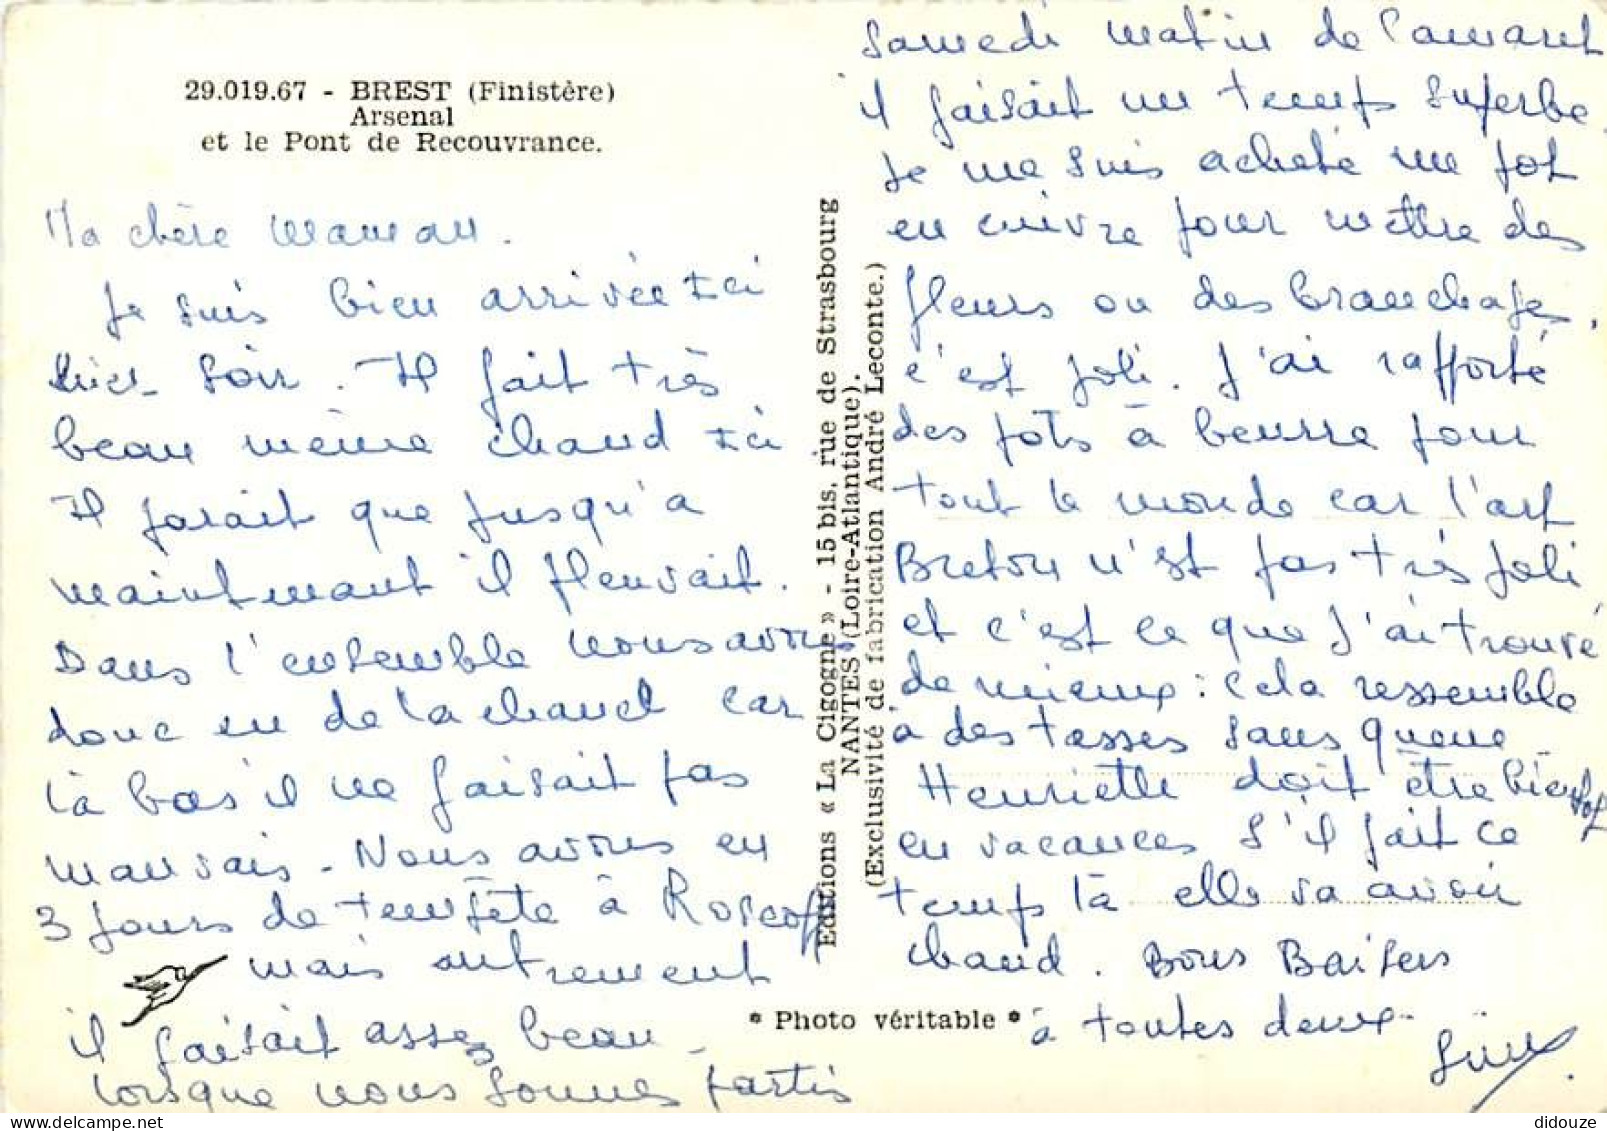 29.019.67 - BREST (Finistère)
Arsenal
et le Pont de Recouvrance.
Ma chère maman.
Je suis bien arrivée ici
hier soir. Il fait très
beau même chaud ici
Il parait que jusqu'a
maintenant il pleuvait.
Dans l'ensemble nous avons
donc eu de la chance car
là bas il ne faisait pas
mauvais - Nous avons eu
3 jours de tempête à Roscoff
mais autrement
il faisait assez beau -
lorsque nous sommes partis
Editions « La Cigogne » - 15 bis, rue de Strasbourg
NANTES (Loire-Atlantique).
(Exclusivité de fabrication André Leconte.)
* Photo véritable *
Samedi matin de Camaret
il faisait un temps superbe.
Je me suis acheté un pot
en cuivre pour mettre des
fleurs ou des branchages,
c'est joli. J'ai rapporté
des pots à beurre pour
tout le monde car l'art
Breton n'est pas très joli
et c'est ce que j'ai trouvé
de mieux : cela ressemble
à des tasses sans queue -
Henriette doit être bientot
en vacances s'il fait ce
temps là elle va avoir
chaud. Bons Baisers
à toutes deux -
didouze